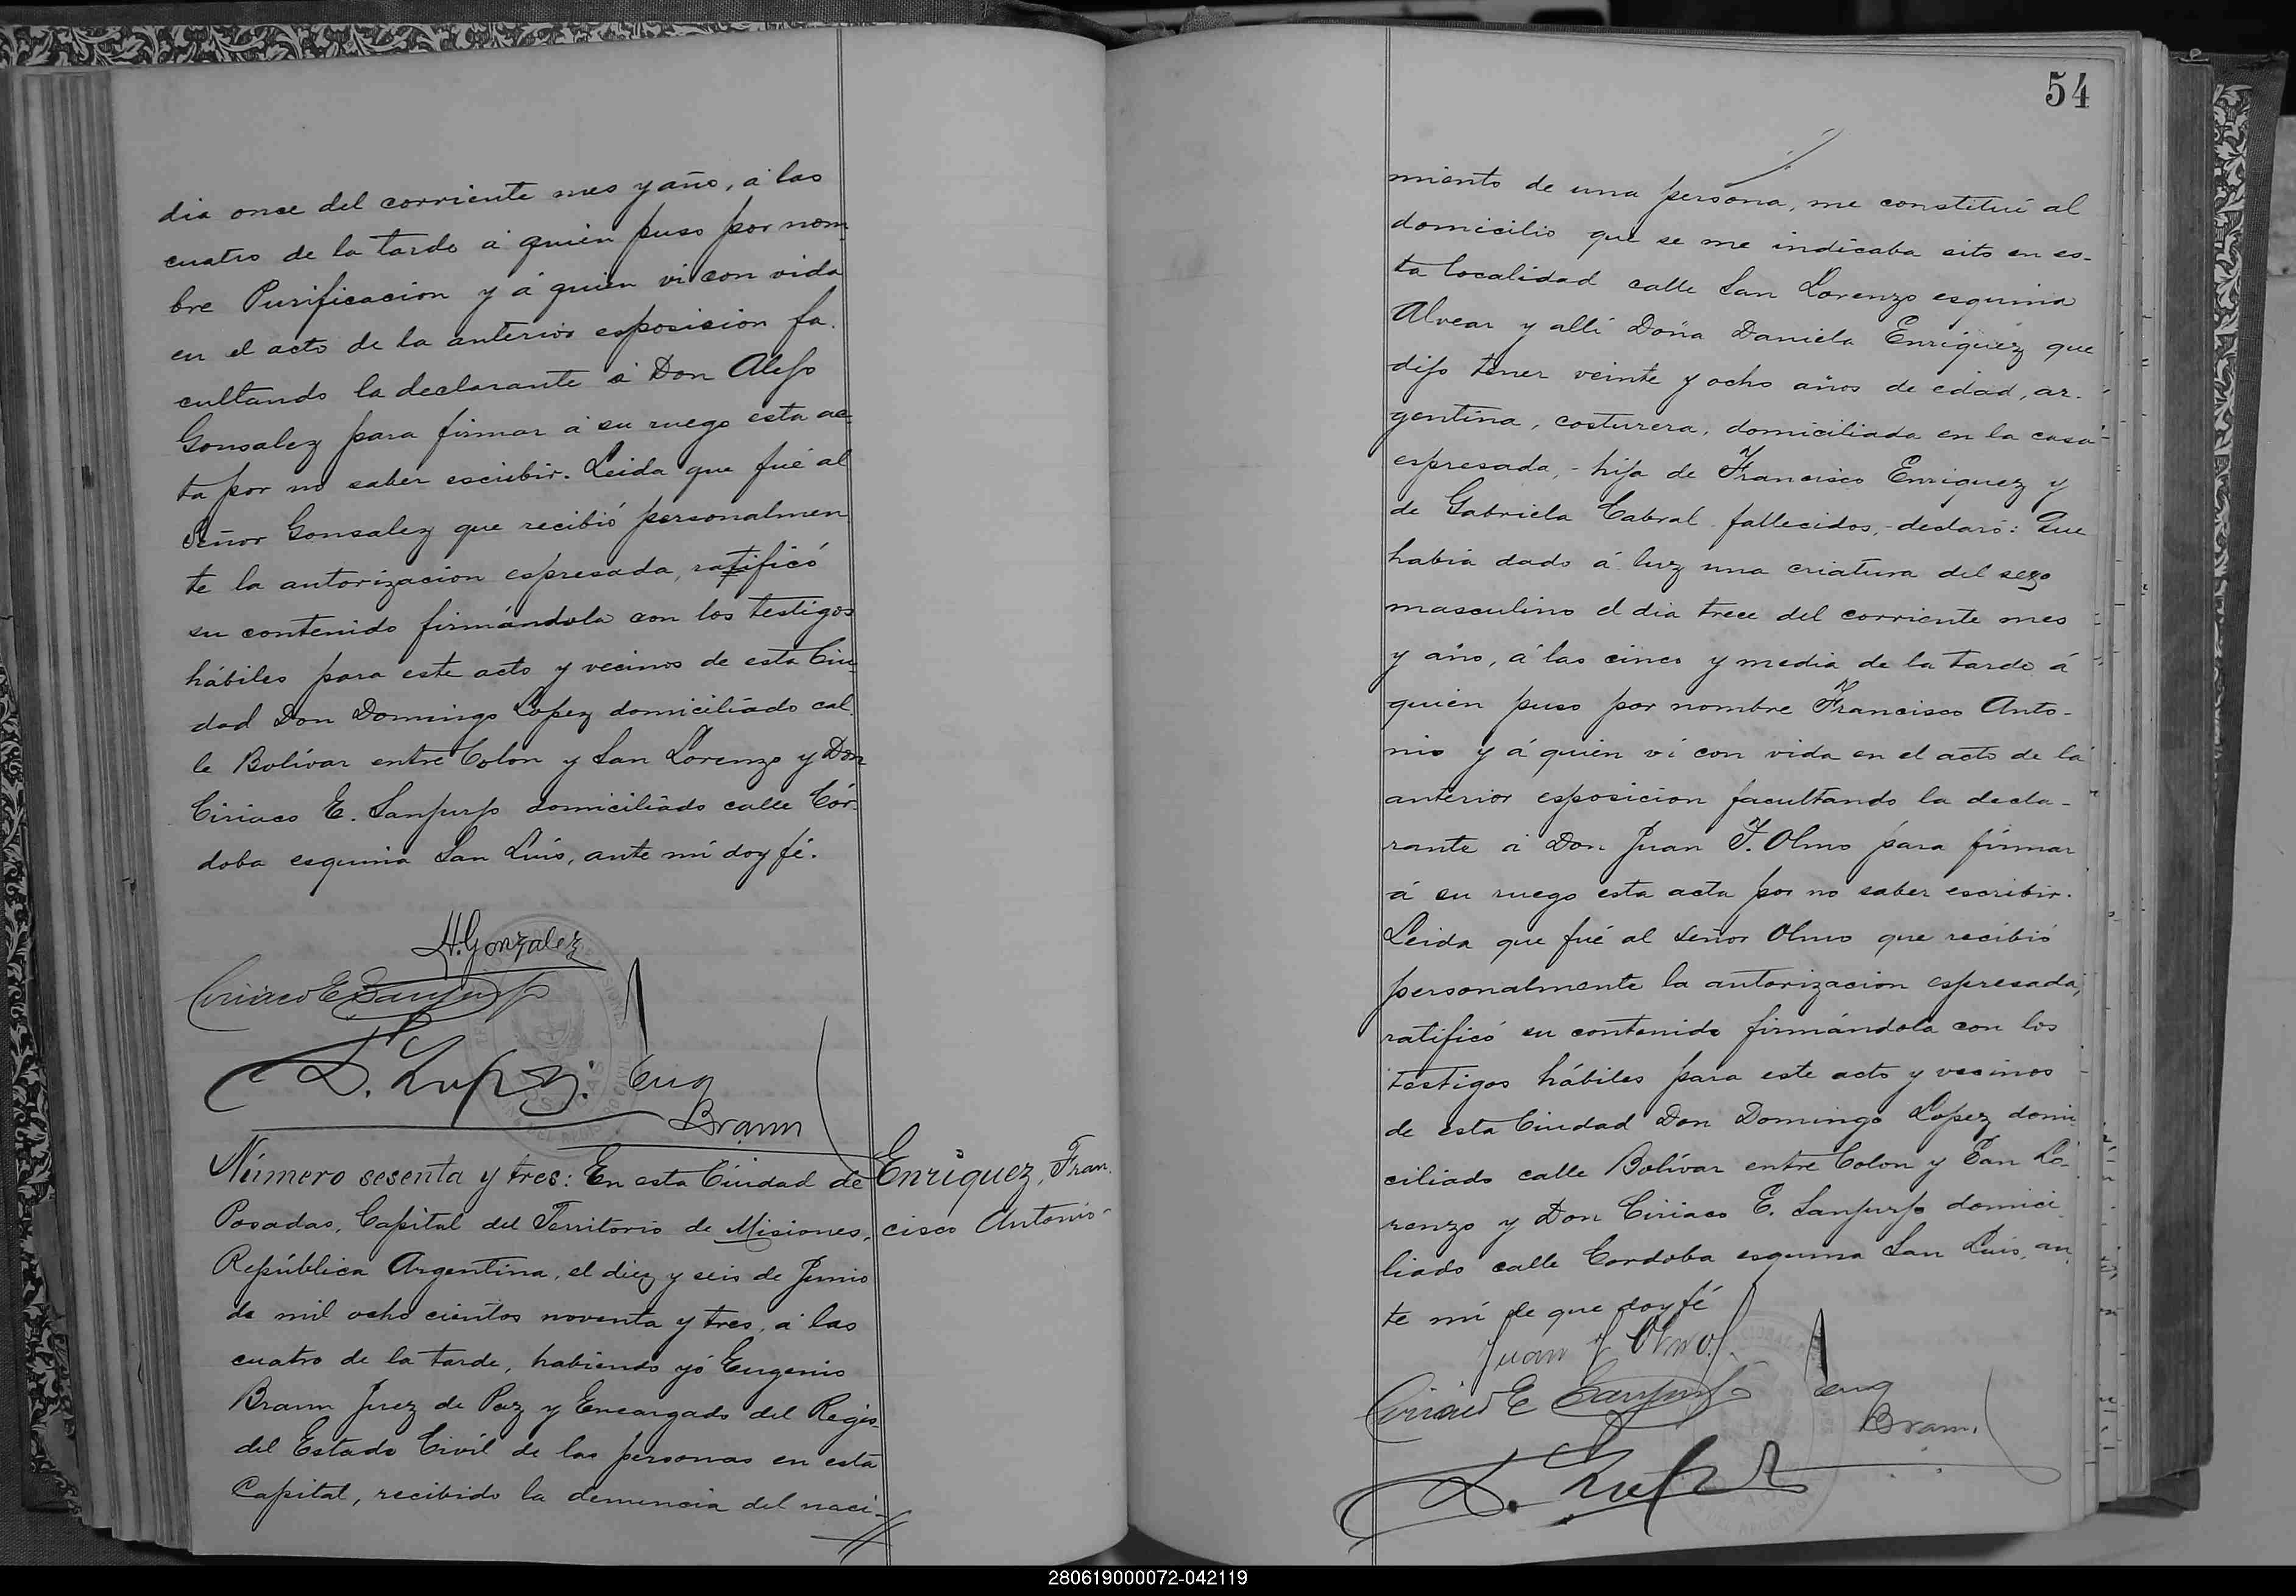 dia once del corriente mes y año, á las
cuatro de la tarde á quien puso por nom
bre Purificacion y á quien vi con vida
en el acto de la anterior esposicion fa.
cultando la declarante á Don Alejo
Gonsalez para firmar á su ruego esta ac
ta por no saber escribir. Leida que fué al
Señor Gonsalez que recibió personalmen
te la autorizacion espresada, ratificó
su contenido firmándola con los testigos
hábiles para este acto y vecinos de esta Ciu
dad Don Domingo Lopez domiciliado cal
le Bolívar entre Colon y San Lorenzo y Don
Ciriaco E. Sanjurjo domiciliado calle Cór
doba esquina San Luis, ante mí doy fé.
A. Gonzalez
Ciriaco E Sanjurjo
D. Lopez.
Eug
Braun
Número sesenta y tres: En esta Ciudad de
Posadas, Capital del Territorio de Misiones,
República Argentina, el diez y seis de Junio
de mil ocho cientos noventa y tres, á las
cuatro de la tarde, habiendo yó Eugenio
Braun Juez de Paz y Encargado del Regis-
del Estado Civil de las personas en esta
Capital, recibido la denuncia del naci-
Enriquez, Fran.
cisco Antonio-
54
miento de una persona, me constituí al
domicilio que se me indicaba sito en es-
ta localidad calle San Lorenzo esquina
Alvear y allí Doña Daniela Enriquez que
dijo tener veinte y ocho años de edad, ar.
gentina, costurera, domiciliada en la casa
espresada, - hija de Francisco Enriquez y
de Gabriela Cabral fallecidos, - declaró: Que
habia dado á luz una criatura del sexo
masculino el dia trece del corriente mes
y año, á las cinco y media de la tarde á
quien puso por nombre Francisco Anto-
nio y á quien vi con vida en el acto de la
anterior esposicion facultando la decla-
rante á Don Juan F. Olmo para firmar
á su ruego esta acta por no saber escribir.
Leida que fué al Señor Olmo que recibió
personalmente la autorizacion espresada,
ratificó su contenido firmándola con los
testigos hábiles para este acto y vecinos
de esta Ciudad Don Domingo Lopez domi
ciliado calle Bolívar entre Colon y San Lo-
renzo y Don Ciriaco E. Sanjurjo domici
liado calle Cordoba esquina San Luis, an
te mí de que doy fé
Juan F Olmo
Ciriaco E Sanjurjo
Eug
Braun.
D. Lopez
280619000072-042119